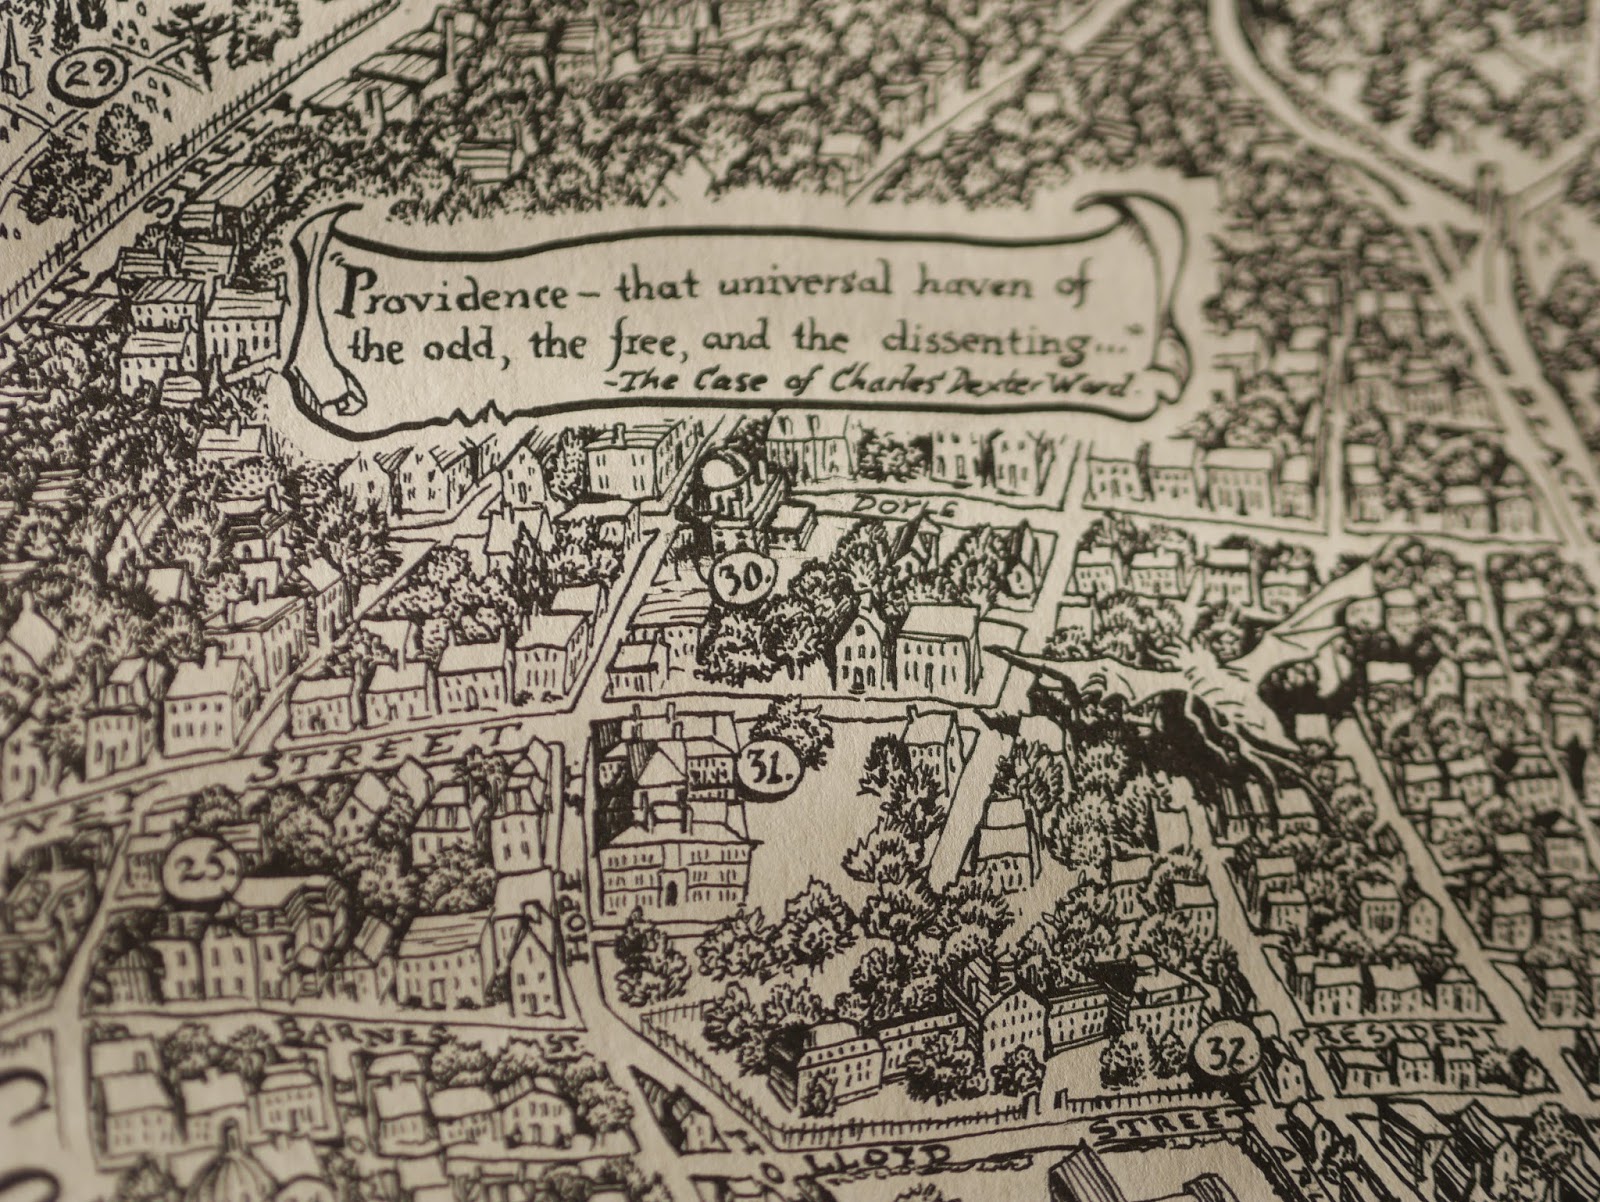 29.
STREET
Providence – that universal haven of
the odd, the free, and the dissenting..."
-The Case of Charles Dexter Ward.
BLACK
DOYLE
30.
STREET
31.
25.
HOPE
ST.
BARNES ST
32
PRESIDENT
LLOYD STREET